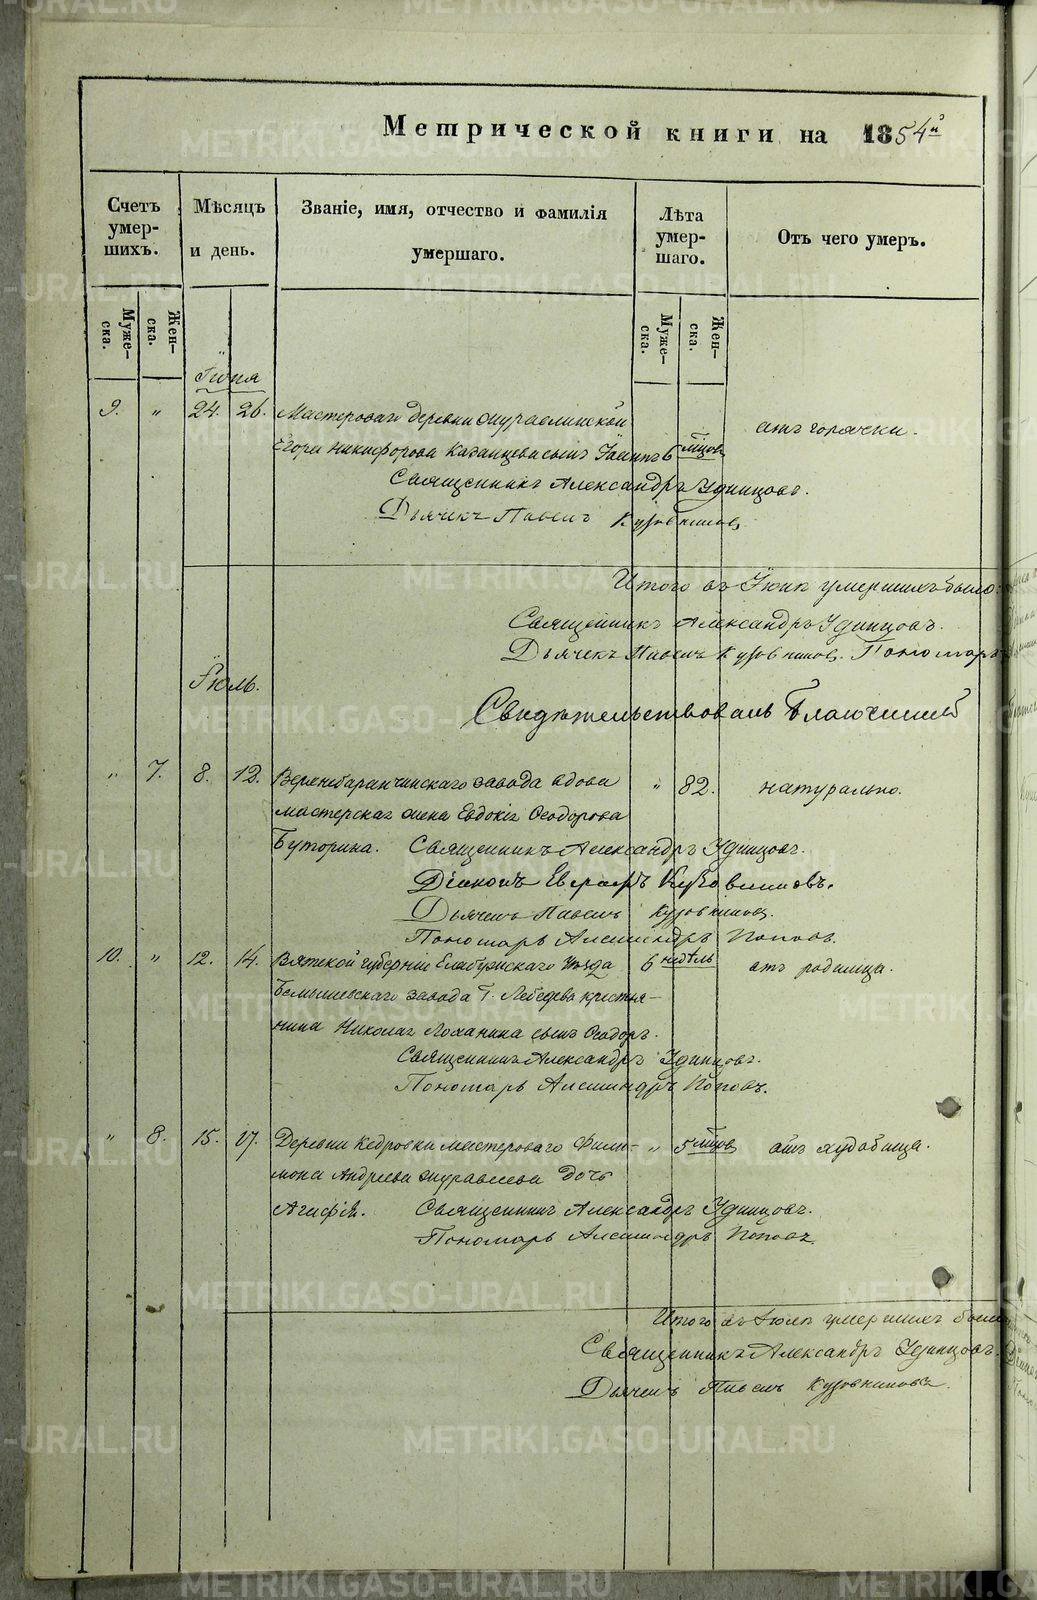 Метрической книги на 1854й
Счетъ умер-шихъ.
Мѣсяцъ и день.
Званіе, имя, отчество и фамилія умершаго.
Лѣта умер-шаго.
Отъ чего умеръ.
Муже-ска.
Жен-ска.
Муже-ска.
Жен-ска.
Іюня
9. " 24. 26. Мастероваго деревни Журавлинской отъ горячки.
Егора Никифорова Казанцева сынъ 6 мѣсцовъ
Священникъ Александръ Удинцовъ.
Дьячекъ Павелъ Кузовниковъ
Итого въ Іюнѣ умершихъ было:
Священникъ Александръ Удинцовъ.
Дьячекъ Павелъ Кузовниковъ. Пономарь
Іюль.
Свидѣтельствовалъ Благочинный
" 7. 8. 12. Верхнебаранчинскаго завода вдова " 82. натурально.
мастерская жена Евдокія Ѳеодорова
Буторина. Священникъ Александръ Удинцовъ.
Діаконъ Кузовниковъ.
Дьячекъ Павелъ Кузовниковъ.
Пономарь Александръ Поповъ.
10. " 12. 14. Вятской губерніи Елабужскаго Уѣзда 6 недѣль отъ родимца.
завода Г. Лебедева крестья-
нина Николая Лоханина сынъ Ѳеодоръ.
Священникъ Александръ Удинцовъ.
Пономарь Александръ Поповъ.
" 8. 15. 17. Деревни Кедровки мастероваго Фили- " 5 мѣсцовъ отъ худобища.
мона Андреева Журавлева дочь
Агафія. Священникъ Александръ Удинцовъ.
Пономарь Александръ Поповъ
Итого въ Іюлѣ умершихъ было
Священникъ Александръ Удинцовъ.
Дьячекъ Павелъ Кузовниковъ.
METRIKI.GASO-URAL.RU